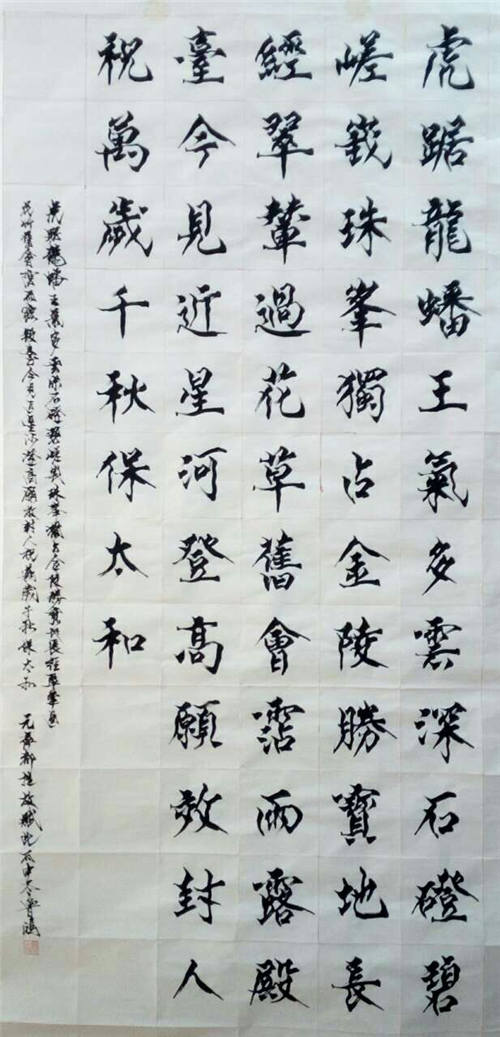 虎踞龍蟠王氣多雲深石磴碧
嵯峩珠峯獨占金陵勝寶地長
經翠輦過花草舊會霑雨露殿
臺今見近星河登高願效封人
祝萬歲千秋保太和
虎踞龍蟠王氣多雲深石磴碧嵯峩珠峯獨占金陵勝寶地長經翠輦過
花草舊會霑雨露殿臺今見近星河登高願效封人祝萬歲千秋保太和 元薩都 丙申冬